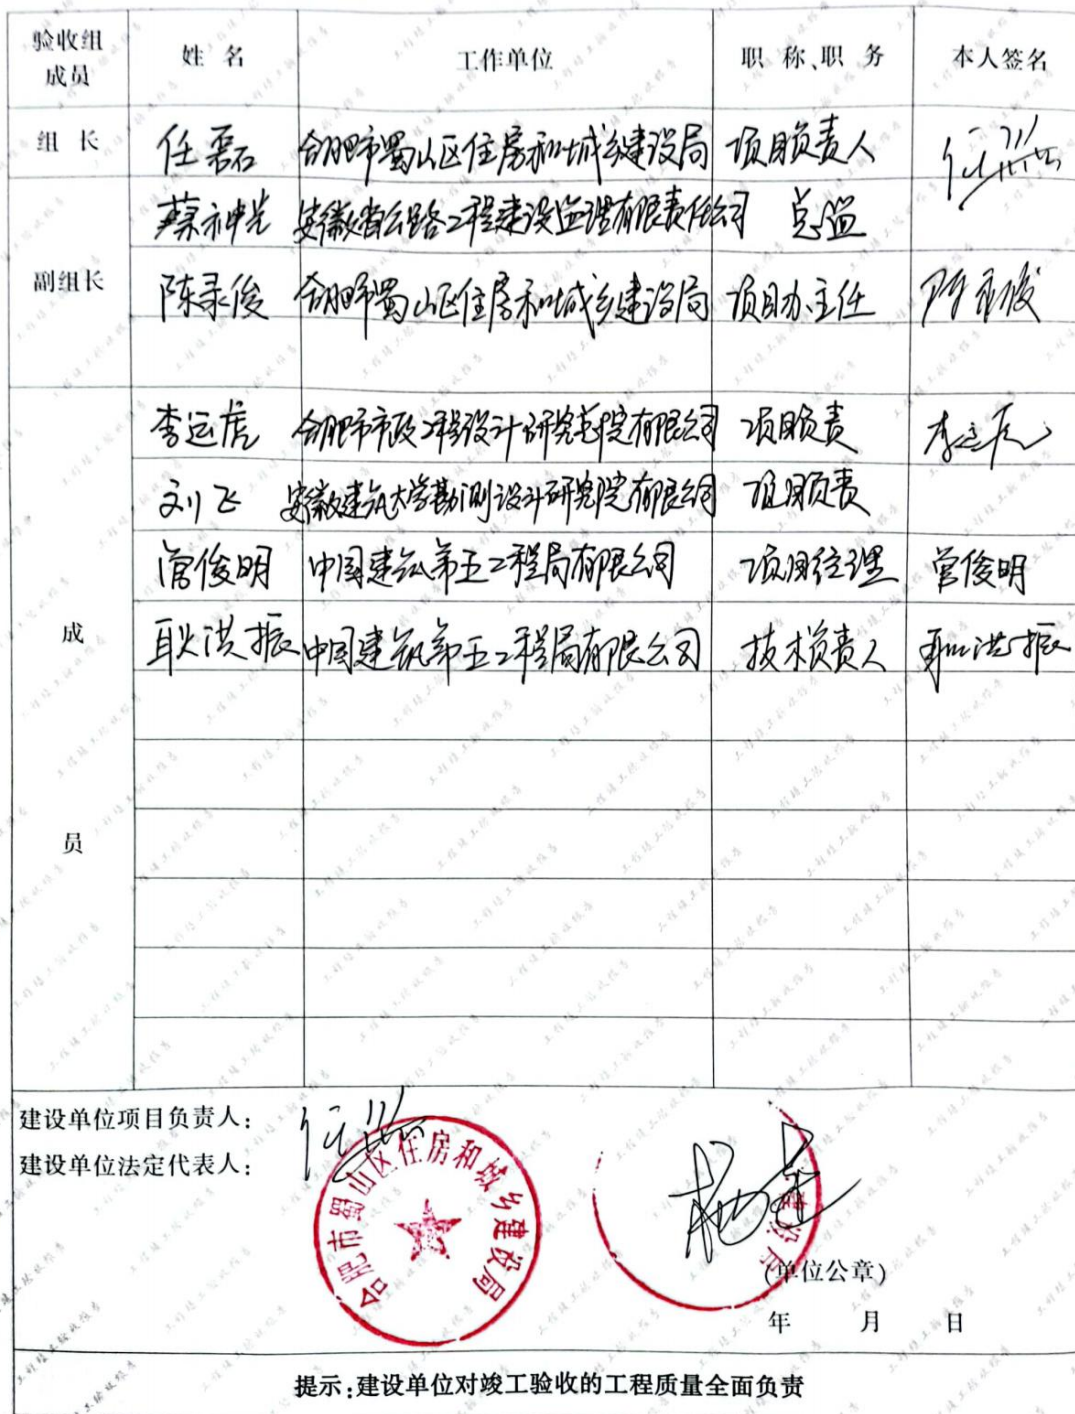 验收组成员 姓名 工作单位 职称、职务 本人签名
组长 任磊 合肥市蜀山区住房和城乡建设局 项目负责人 任磊
蔡神光 安徽省公路工程建设监理有限责任公司 总监
副组长 陈录俊 合肥市蜀山区住房和城乡建设局 项目办主任 陈录俊
李运虎 合肥市市政工程设计研究总院有限公司 项目负责 李运虎
刘飞 安徽建筑大学勘测设计研究院有限公司 项目负责
管俊明 中国建筑第五工程局有限公司 项目经理 管俊明
成 耿洪振 中国建筑第五工程局有限公司 技术负责人 耿洪振
员
建设单位项目负责人: 任磊
建设单位法定代表人:
合肥市蜀山区住房和城乡建设局
(单位公章)
年 月 日
提示:建设单位对竣工验收的工程质量全面负责